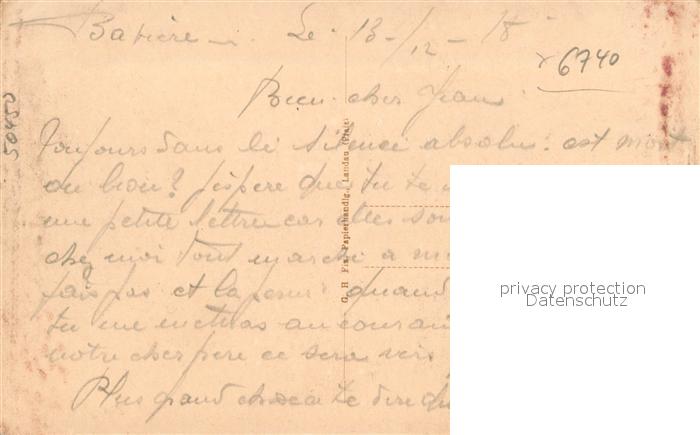 Bavière Le 13-/12-18
6740
50450
Bien cher Jean
Toujours dans le silence absolu: est mort
ou bon? j'espère que tu te
une petite lettre car elles son
chez moi tout marche a
fais pas et la quand
tu me mettras au courant
notre cher père ce sera
Plus grand chose a te dire
G. H. Fix, Papierhandlg., Landau (Pfalz)
privacy protection
Datenschutz